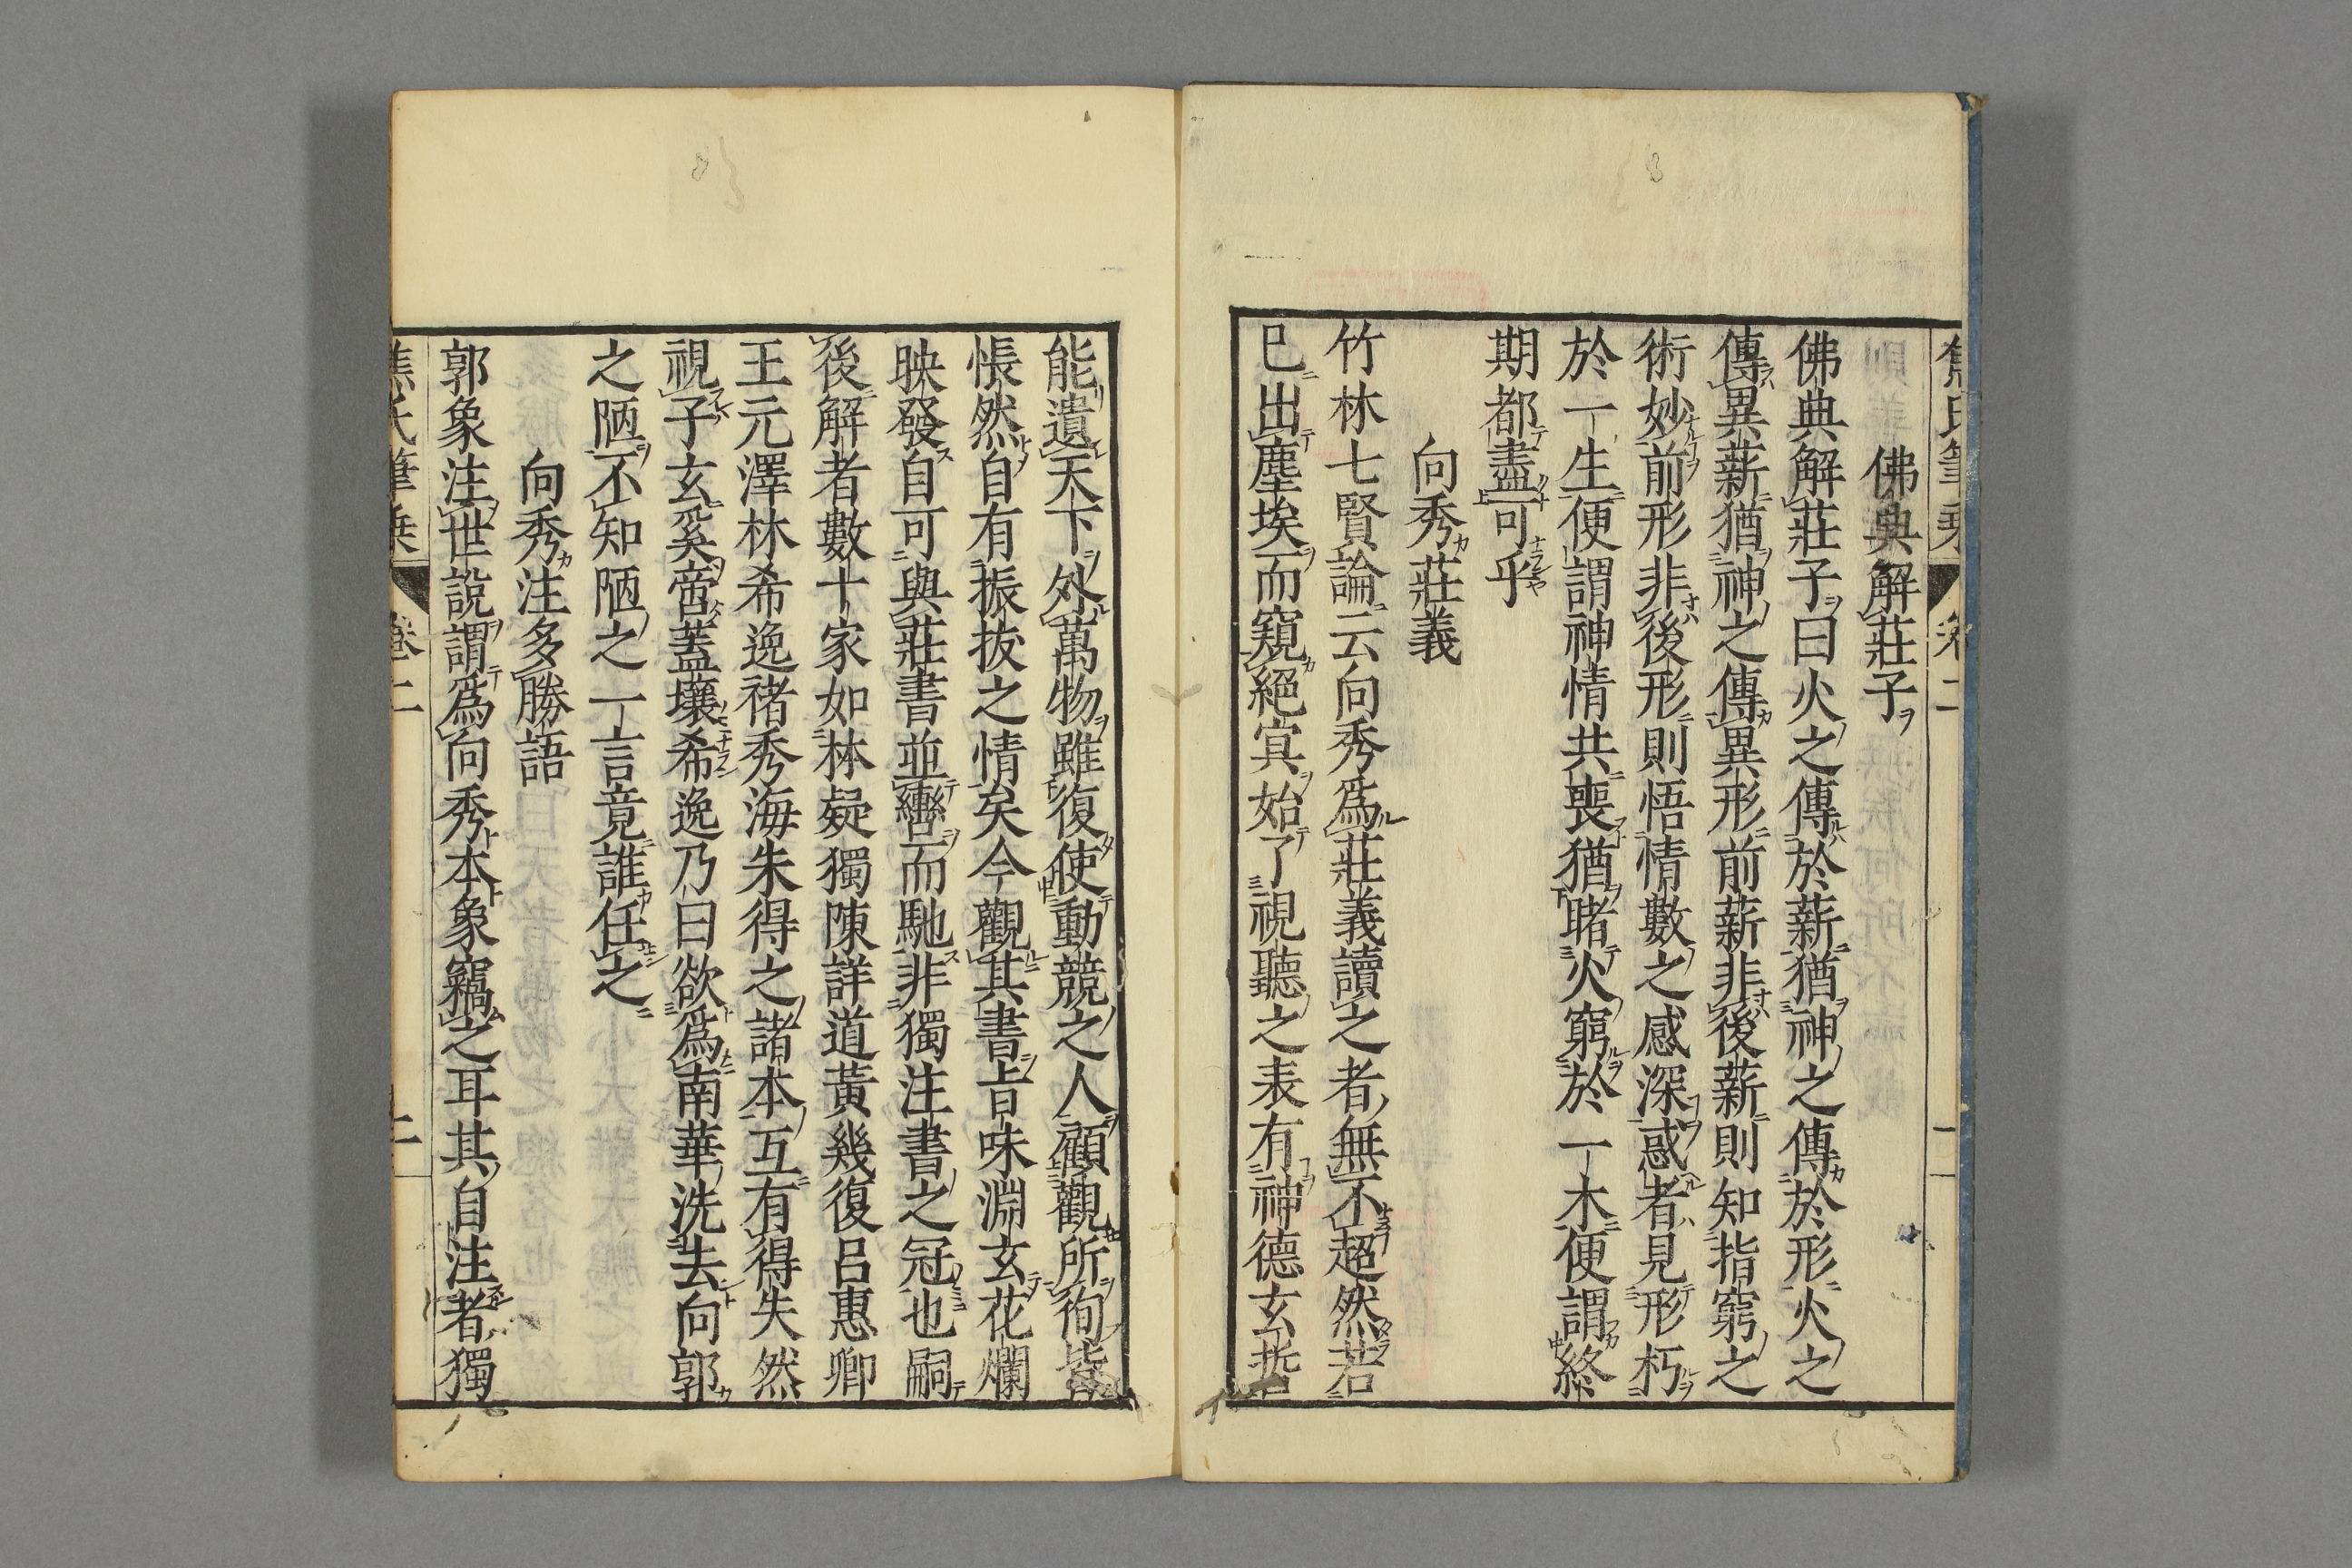 焦氏筆乘 卷二 二
佛典解莊子
佛典解莊子曰火之傳於薪猶神之傳於形火之
傳異薪猶神之傳異形前薪非後薪則知指窮之
術妙前形非後形則悟情數之感深惑者見形朽
於一生便謂神情共喪猶睹火窮於一木便謂終
期都盡可乎
向秀莊義
竹林七賢論云向秀爲莊義讀之者無不超然若
已出塵埃而窺絕冥始了視聽之表有神德玄哲
能遺天下外萬物雖復使動競之人顧觀所徇皆
悵然自有振拔之情矣今觀其書旨味淵玄花爛
映發自可與莊書並轡而馳非獨注書之冠也嗣
後解者數十家如林疑獨陳詳道黃幾復呂惠卿
王元澤林希逸褚秀海朱得之諸本互有得失然
視子玄奚啻蓋壤希逸乃曰欲爲南華洗去向郭
之陋不知陋之一言竟誰任之
向秀注多勝語
郭象注世說謂爲向秀本象竊之耳其自注者獨
焦氏筆乘 卷二 二